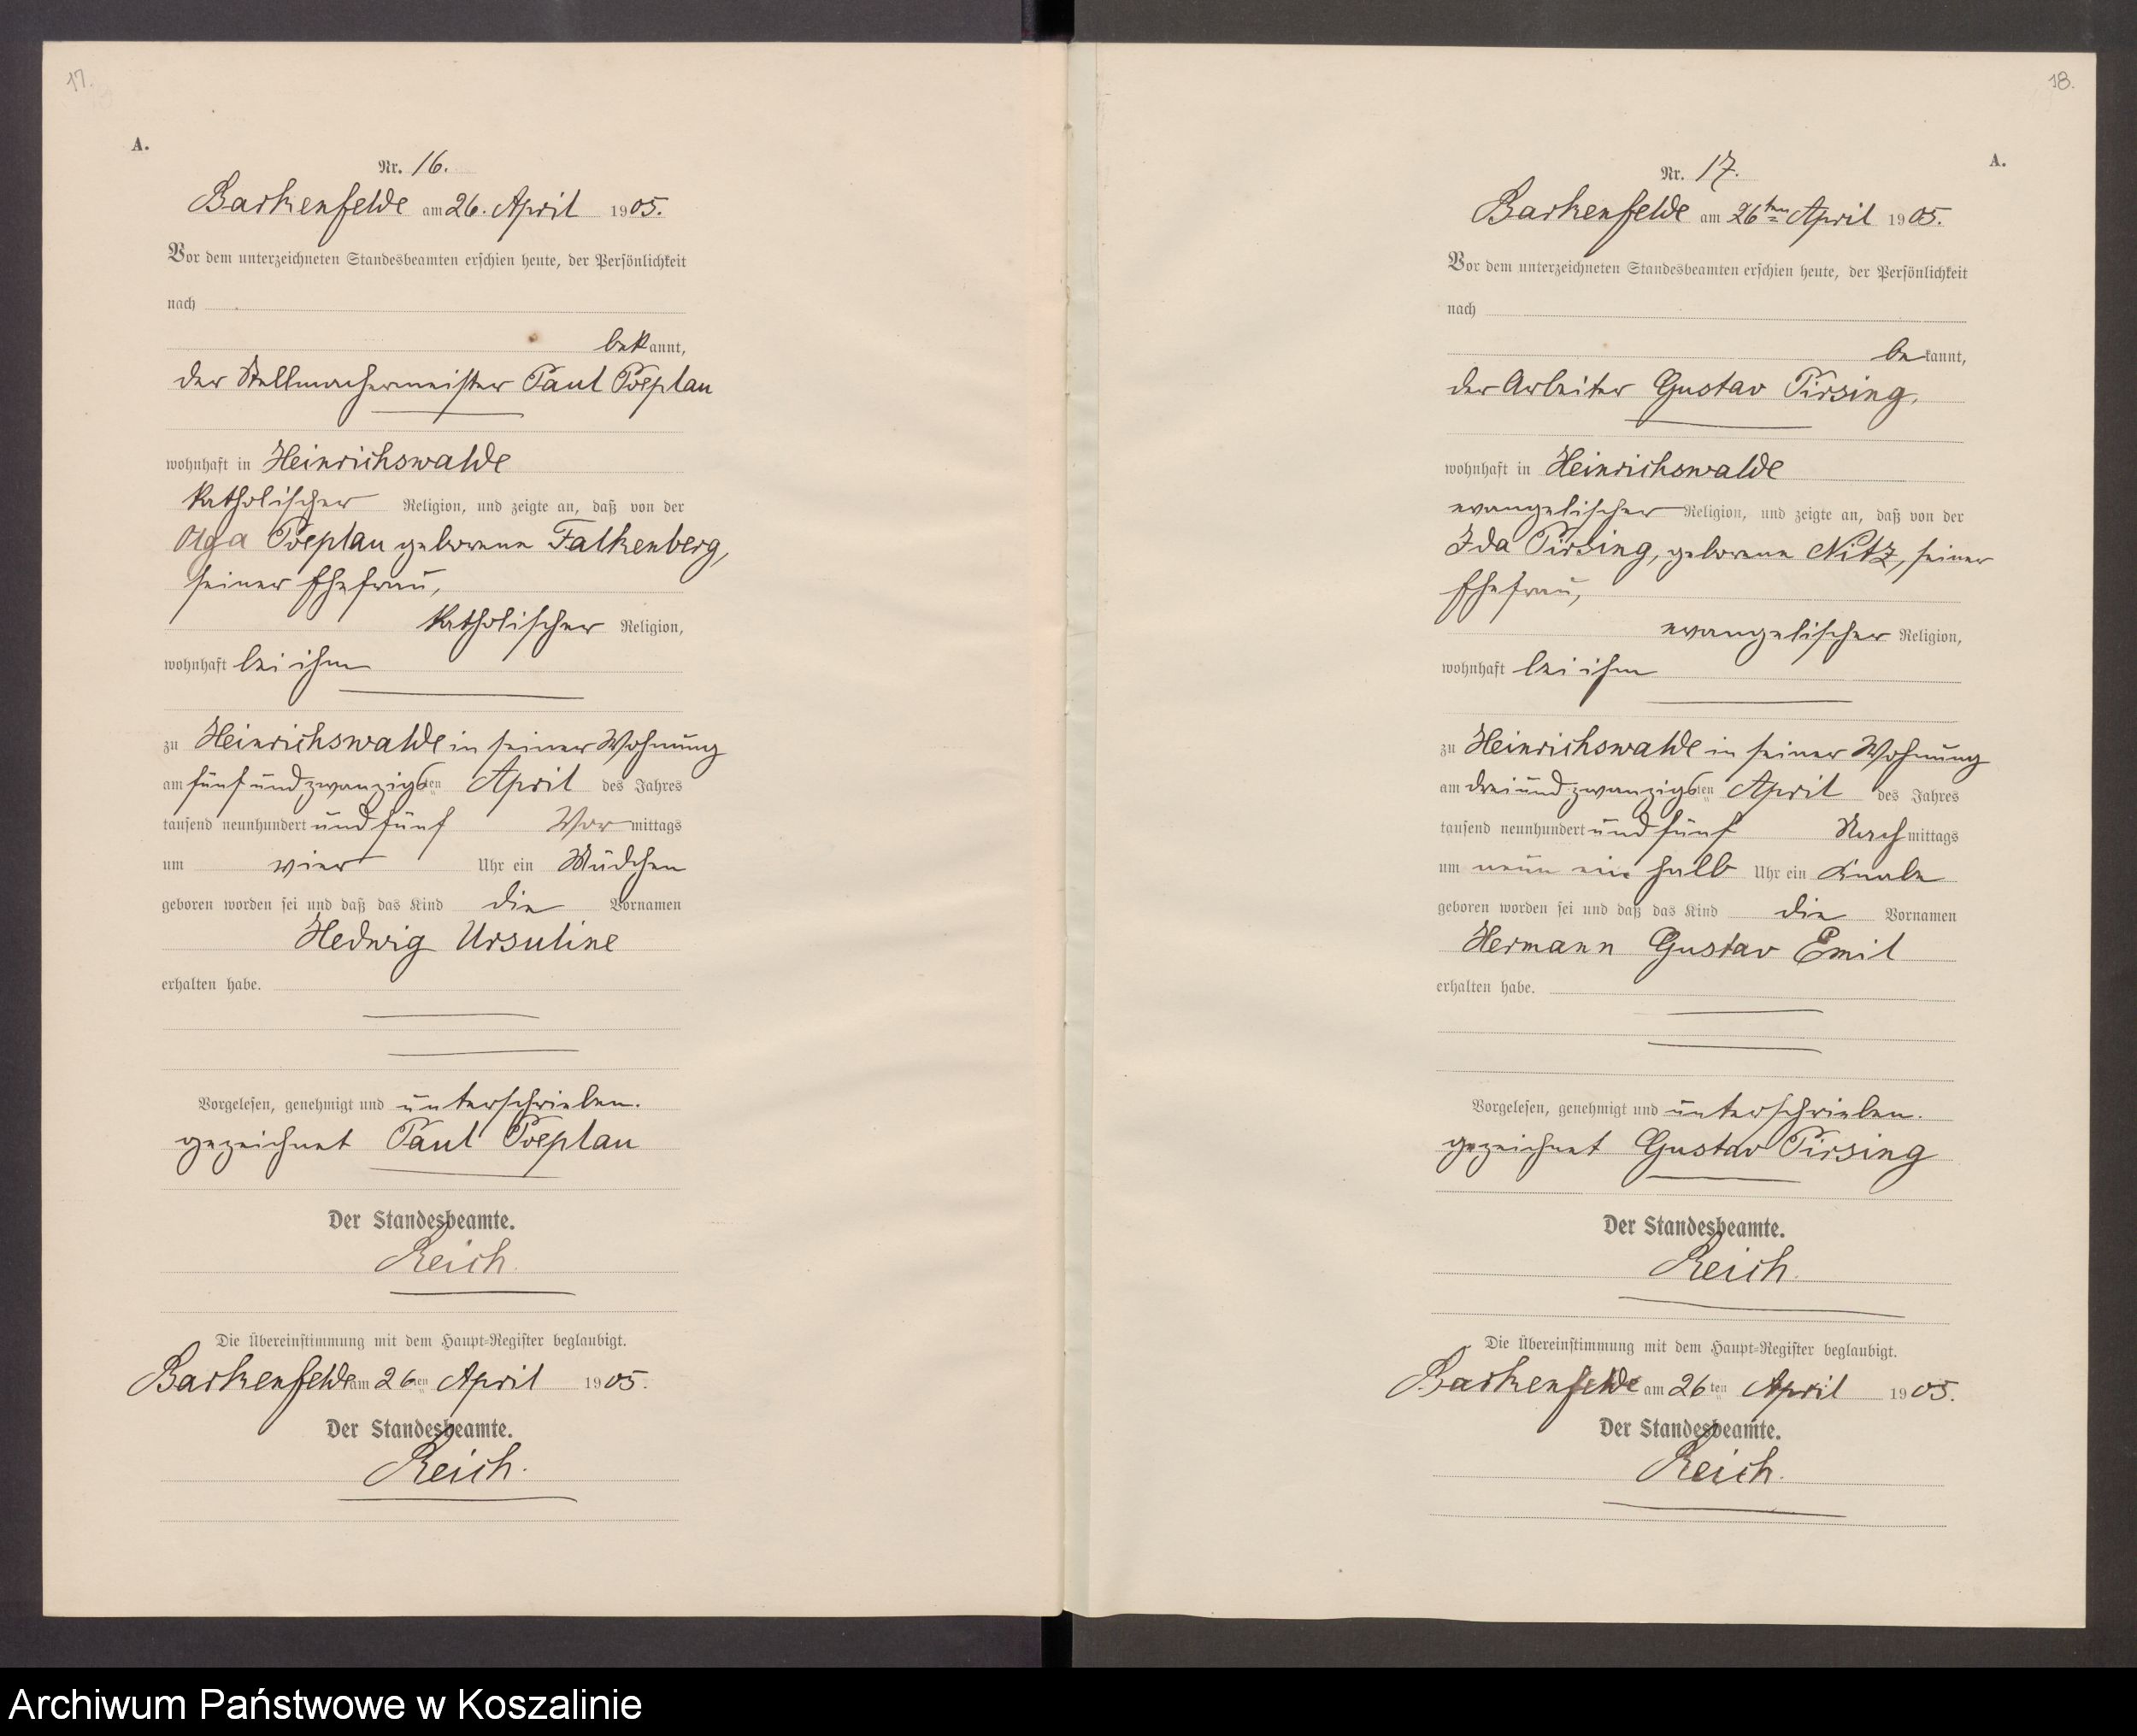 17.
A.
Nr. 16.
Barkenfelde am 26. April 1905.
Vor dem unterzeichneten Standesbeamten erschien heute, der Persönlichkeit
nach
bekannt,
der Stellmachermeister Paul Poeplau
wohnhaft in Heinrichswalde
katholischer Religion, und zeigte an, daß von der
Olga Poeplau geborene Falkenberg,
seiner Ehefrau,
katholischer Religion,
wohnhaft bei ihm
zu Heinrichswalde in seiner Wohnung
am fünfundzwanzigsten April des Jahres
tausend neunhundert und fünf Vormittags
um vier Uhr ein Mädchen
geboren worden sei und daß das Kind die Vornamen
Hedwig Ursuline
erhalten habe.
Vorgelesen, genehmigt und unterschrieben.
gezeichnet Paul Poeplau
Der Standesbeamte.
Reich.
Die Übereinstimmung mit dem Haupt-Register beglaubigt.
Barkenfelde am 26ten April 1905.
Der Standesbeamte.
Reich.
18.
A.
Nr. 17.
Barkenfelde am 26ten April 1905.
Vor dem unterzeichneten Standesbeamten erschien heute, der Persönlichkeit
nach
bekannt,
der Arbeiter Gustav Pirsing,
wohnhaft in Heinrichswalde
evangelischer Religion, und zeigte an, daß von der
Ida Pirsing, geborene Nitz, seiner
Ehefrau,
evangelischer Religion,
wohnhaft bei ihm
zu Heinrichswalde in seiner Wohnung
am dreiundzwanzigsten April des Jahres
tausend neunhundert und fünf Nachmittags
um neun ein halb Uhr ein Knabe
geboren worden sei und daß das Kind die Vornamen
Hermann Gustav Emil
erhalten habe.
Vorgelesen, genehmigt und unterschrieben.
gezeichnet Gustav Pirsing
Der Standesbeamte.
Reich.
Die Übereinstimmung mit dem Haupt-Register beglaubigt.
Barkenfelde am 26ten April 1905.
Der Standesbeamte.
Reich.
Archiwum Państwowe w Koszalinie